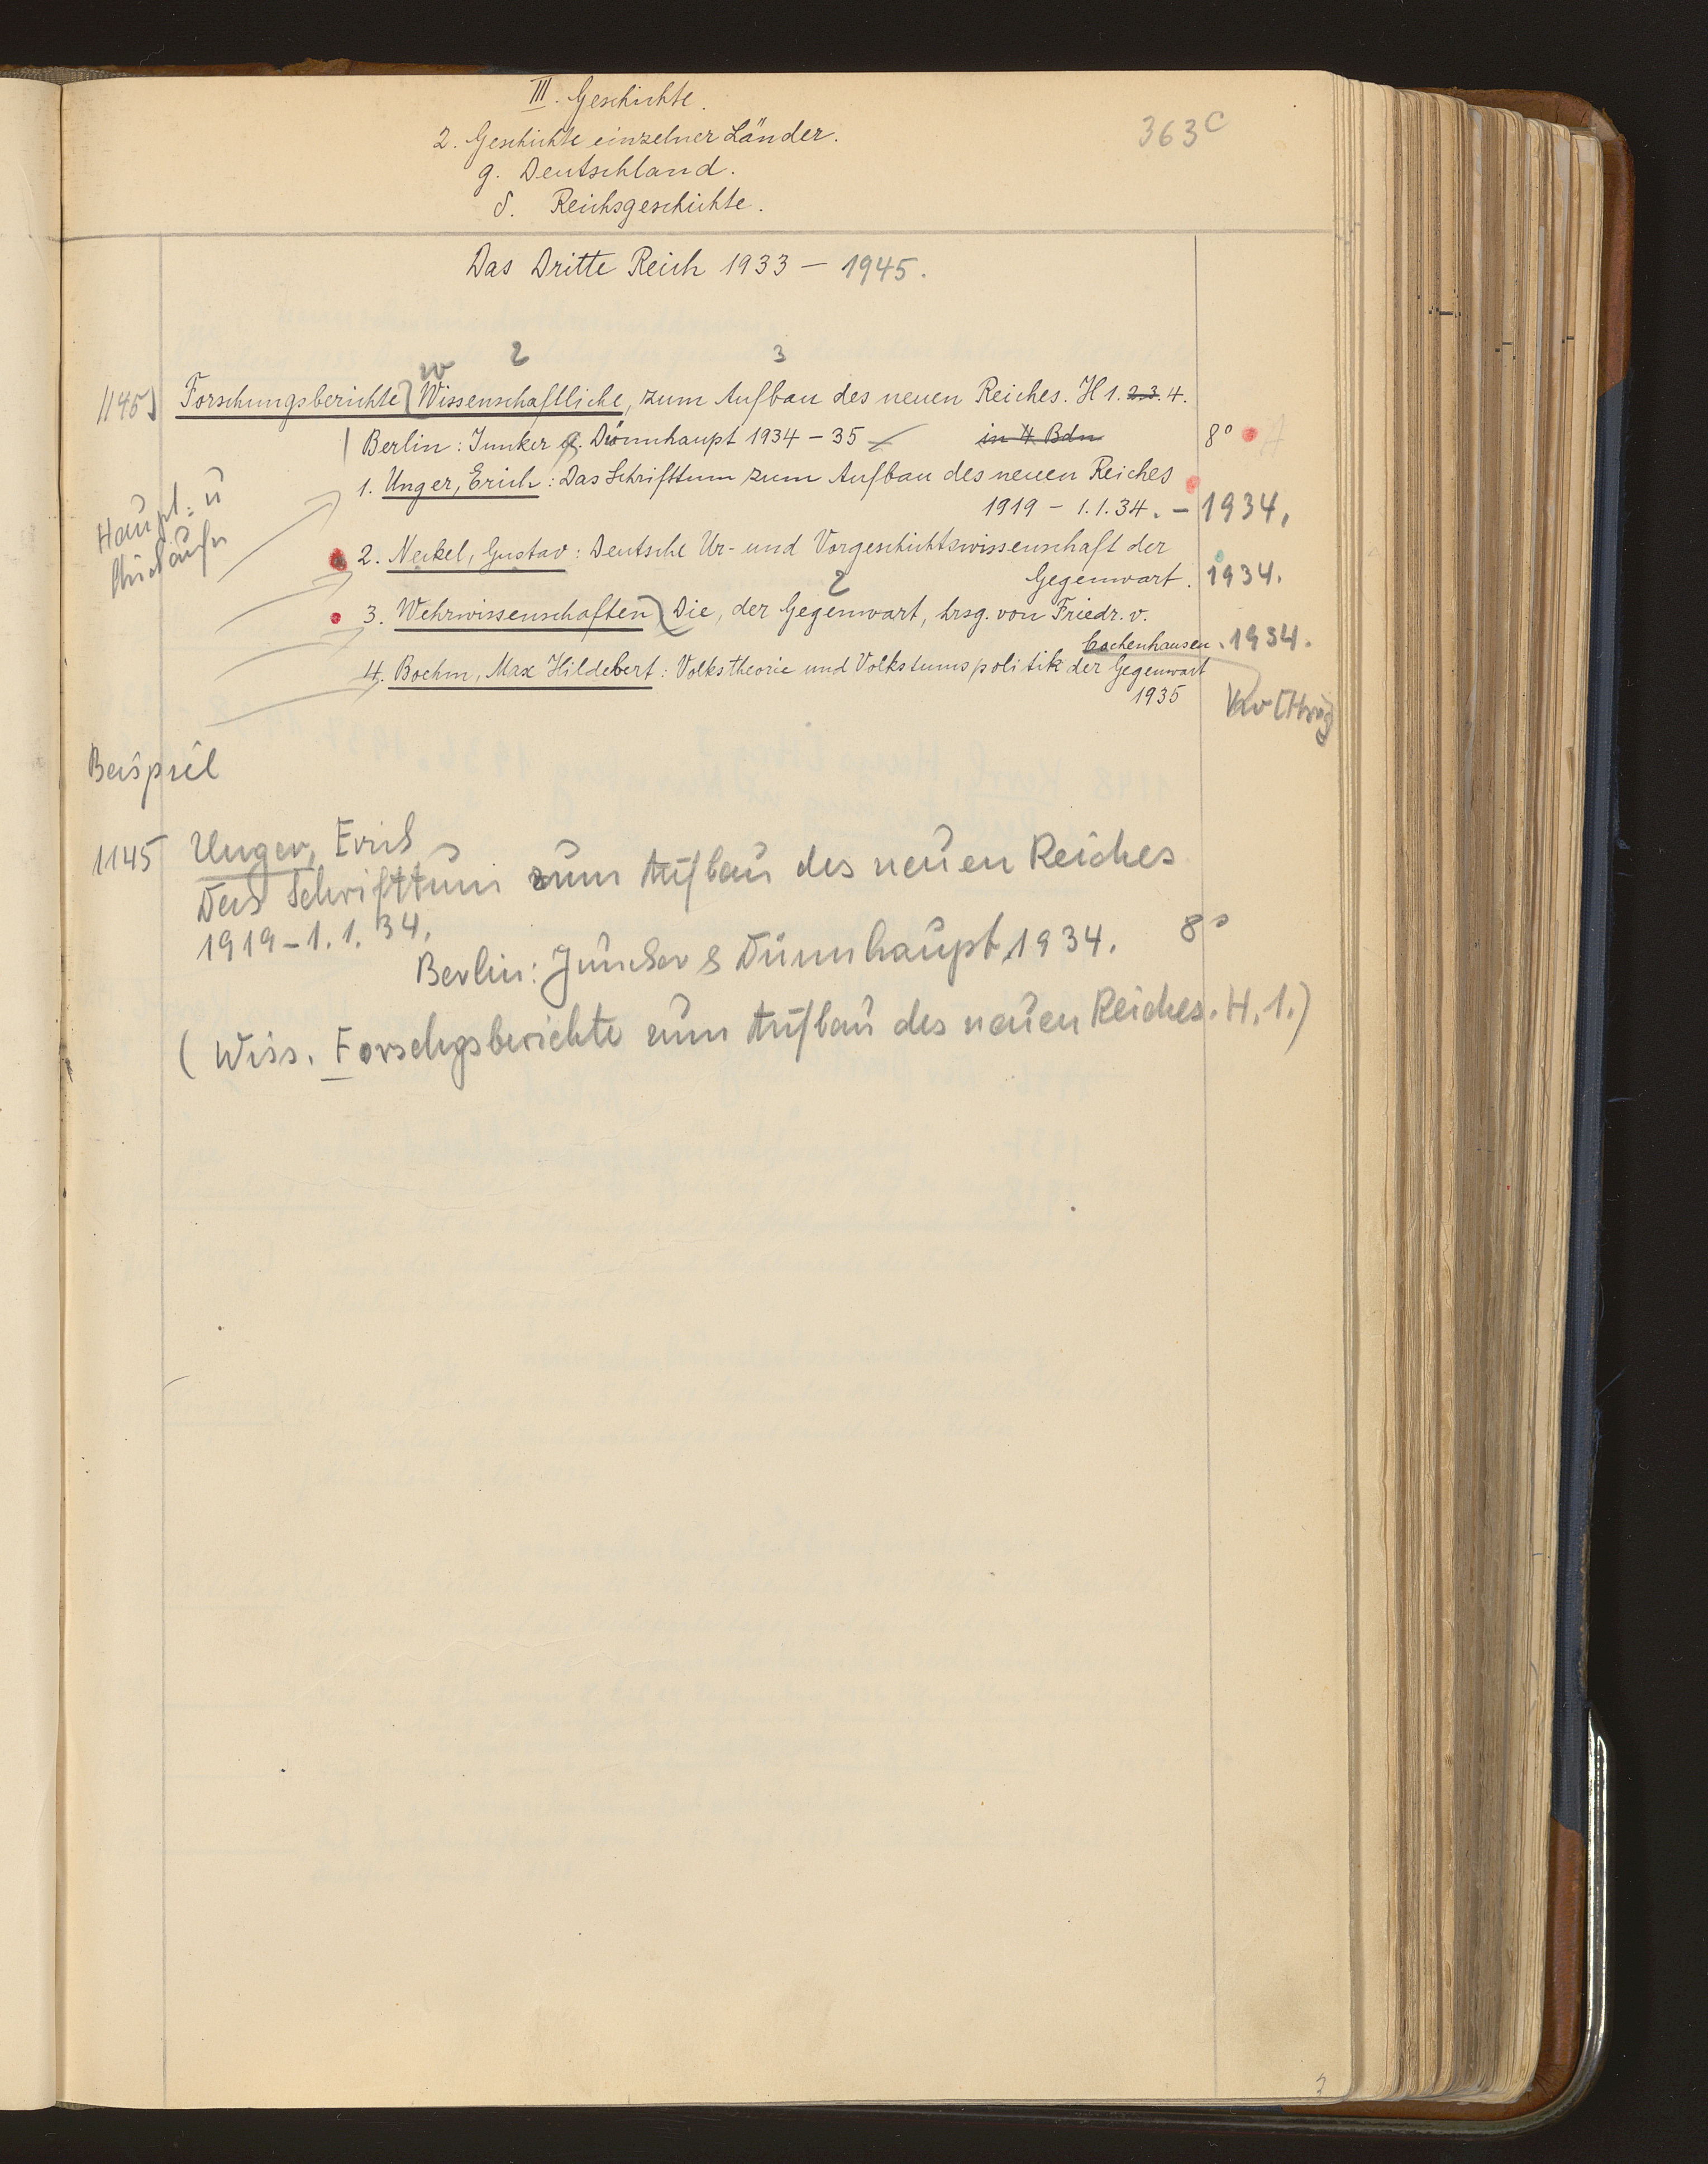 III. Geschichte.
363 C
2. Geschichte einzelner Länder.
g. Deutschland.
δ. Reichsgeschichte.
Das Dritte Reich 1933 – 1945.
w 2 3
1145) Forschungsberichte) Wissenschaftliche, zum Aufbau des neuen Reiches. H 1. 2.3. 4.
Berlin: Junker u. Dünnhaupt 1934 – 35 in 4 Bdn 8°
1. Unger, Erich: Das Schrifttum zum Aufbau des neuen Reiches
1919 – 1.1.34. – 1934.
Haupt- u
2. Neckel, Gustav: Deutsche Ur- und Vorgeschichtswissenschaft der
Gegenwart. 1934.
2
3. Wehrwissenschaften) Die, der Gegenwart, hrsg. von Friedr. v.
Cochenhausen. 1934.
4. Boehm, Max Hildebert: Volkstheorie und Volkstumspolitik der Gegenwart
1935
Beispiel
1145 Unger, Erich
Das Schrifttum zum Aufbau des neuen Reiches
1919 – 1.1.34.
Berlin: Juncker & Dünnhaupt, 1934. 8°
(Wiss. Forschgsberichte zum Aufbau des neuen Reiches. H. 1.)